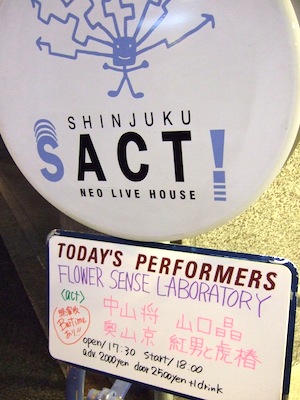 SHINJUKU
SACT!
NEO LIVE HOUSE
TODAY'S PERFORMERS
FLOWER SENSE LABORATORY
<act>
中山将 山口晶
奥山京 紅男と虎椿
Bar Time
あり!!
open/17:30 start/18:00
adv.2000yen door2500yen +1drink